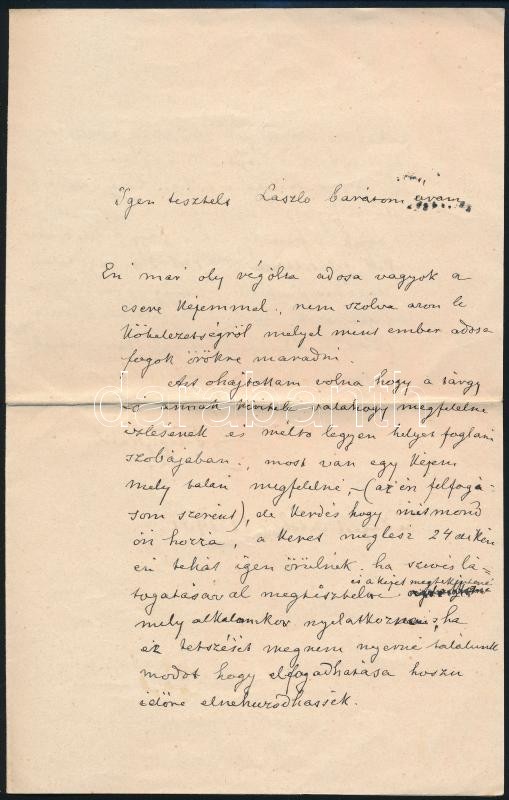 Igen tisztelt László barátom uram
Én már oly régólta adósa vagyok a
csere képemmel, nem szolva azon le
kötelezetségről melyel mint ember adósa
fogok örökre maradni.
Azt ohajtottam volna hogy a tárgy
és annak kivitele valahogy megfelelne
izlésének es mélto legyen helyet foglalni
szobájában, most van egy képem
mely talán megfelelne, – (az én felfogá-
som szerint), de kérdés hogy mitmond
ön hozzá, a keret meglesz 24 én
én tehát igen örülnék ha szives lá-
togatásával megtisztelne
és a képet megtekintené
mely alkalomkor nyelatkoznék, ha
ez tetszését megnem nyerné találunk
modot hogy elfogadhatása hoszu
időre elnehuzodhassék.
darabanth.com